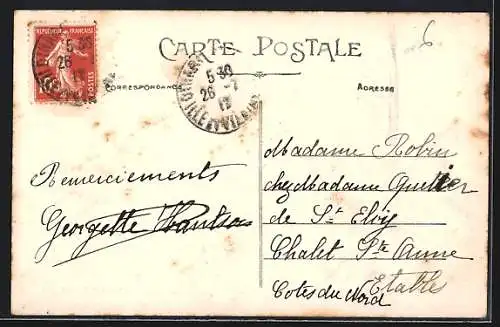 REPUBLIQUE FRANÇAISE
POSTES
CARTE POSTALE
5 30
26 -7
12
ILLE ET VILAINE
CORRESPONDANCE
ADRESSE
6
Remerciements
Georgette
Madame Robin
chez Madame
de St Eloy
Chalet Ste Anne
Etables
Cotes du Nord